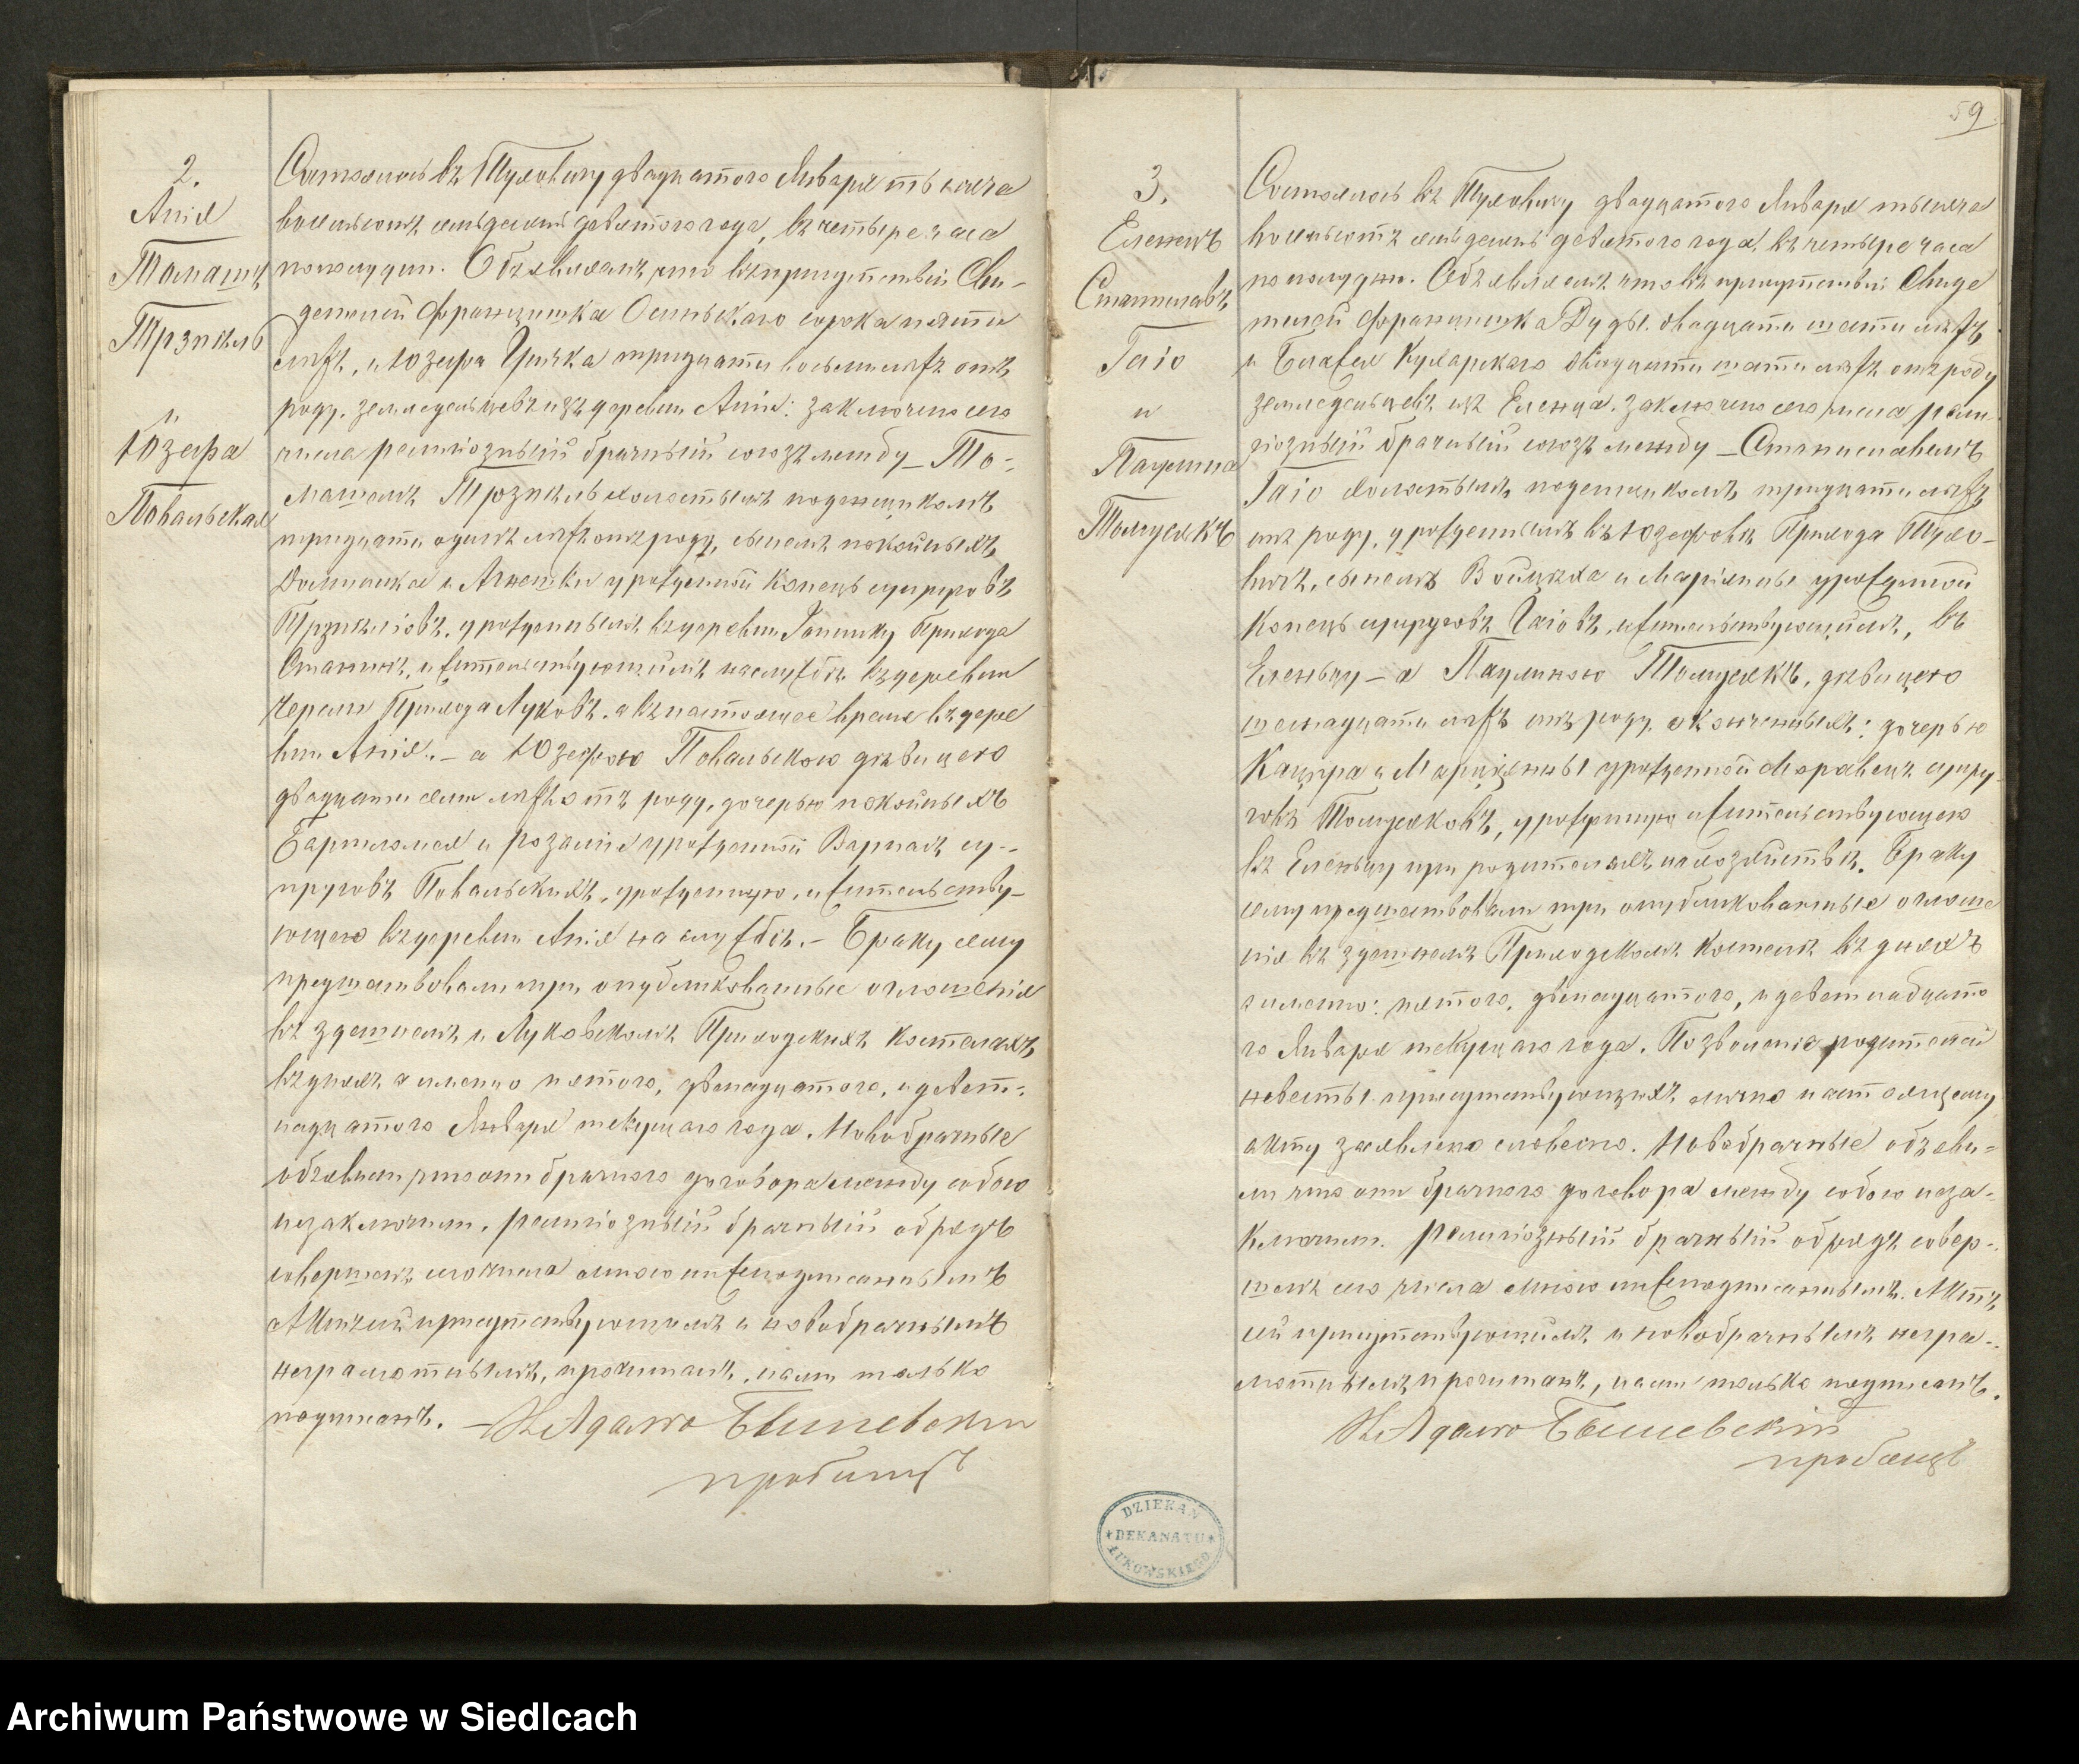 2.
Анiя
Томашъ
Трзпиль
и
Юзефа
Повальская
Состоялось въ Туховичу двадцатого Января тысяча
восемьсотъ семьдесятъ девятого года, въ четыре часа
пополудни. Объявляемъ, что въ присутствiи Сви-
детелей Францишка Осиньскаго сорока пяти
летъ, и Юзефа тридцати восьми летъ отъ
роду, земледельцевъ изъ деревни Анiи: заключенъ сего
числа религiозный брачный союзъ между – То-
машемъ холостымъ поденщикомъ
тридцати одинъ летъ отъ роду, сыномъ покойныхъ
Доминика и Агнешки урожденной Конецъ супруговъ
урожденнымъ въ деревни Прихода
Станинъ, и жительствующимъ на службе въ деревни
Прихода Луковъ, а въ настоящее время въ дере
вни Анiя. – а Юзефою Повальскою девицею
двадцати семи летъ отъ роду, дочерью покойныхъ
Бартломея и Розалiи урожденной су-
пруговъ Повальскихъ, урожденную, и жительству-
ющею въ деревни Анiя на службе. – Браку сему
предшествовали три опубликованные оглашенiя
въ здешнемъ и Луковскомъ Приходскихъ костелахъ
въ дняхъ а именно пятого, двенадцатого, и девят-
надцатого Января текущаго года. Новобрачные
объявили что они брачнаго договора между собою
незаключили. Религiозный брачный обрядъ
совершенъ сего числа мною нижеподписаннымъ
Актъ сей присутствующимъ и новобрачнымъ
неграмотнымъ, прочитанъ, нами только
подписанъ. – Кс Адамъ
пробощъ
59
3.
Еленецъ
Станиславъ
Гаiо
и
Паулина
Томусякъ
Состоялось въ Туховичу двадцатого Января тысяча
восемьсотъ семьдесятъ девятого года, въ четыре часа
пополудни. Объявляемъ что въ присутствiи Свиде
телей Францишка Дуды двадцати шести летъ,
и Блажея Кухарскаго двадцати шести летъ отъ роду
земледельцевъ изъ Еленца, заключенъ сего числа рели
гiозный брачный союзъ между – Станиславомъ
Гаiо холостымъ, поденщикомъ, тридцати летъ
отъ роду, урожденнымъ въ Юзефове Прихода Тухо-
вичъ, сыномъ Войцеха и Марiянны урожденной
Конецъ супруговъ Гаiовъ, и жительствующимъ, въ
Еленцу – а Паулиною Томусякъ, девицею
шестнадцати летъ отъ роду оконченныхъ: дочерью
Кацпра и Марiянны урожденной Моравецъ супру
говъ Томусяковъ, урожденную и жительствующею
въ Еленцу при родителяхъ на хозяйстве. Браку
сему предшествовали три опубликованные оглаше
нiя въ здешнемъ Приходскомъ костеле въ дняхъ
а именно: пятого, двенадцатого, и девятнадцато
го Января текущаго года. Позволенiе родителей
невесты присутствующихъ лично настоящему
акту заявлено словесно. Новобрачные объяви-
ли что они брачнаго договора между собою неза-
ключили. Религiозный брачный обрядъ совер-
шенъ сего числа мною нижеподписаннымъ. Актъ
сей присутствующимъ и новобрачнымъ негра-
мотнымъ прочитанъ, нами только подписанъ.
Кс Адамъ
пробощъ
DZIEKAN
DEKANATU
ŁUKOWSKIEGO
Archiwum Państwowe w Siedlcach